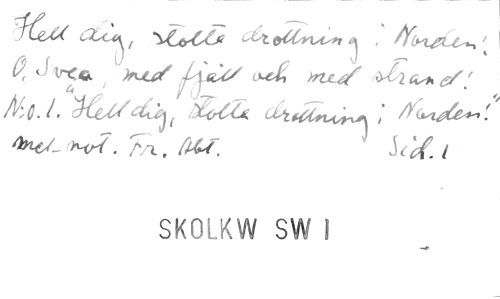 Hell dig, stolta drottning i Norden!
O, Svea, med fjäll och med strand!
N:o. 1. "Hell dig, stolta drottning i Norden!"
med not. Fr. Abt. Sid. 1
SKOLKW SW 1